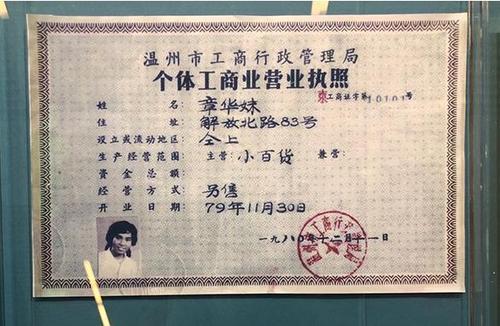 温州市工商行政管理局
个体工商业营业执照
东工商证字第10101号
姓 名： 章华妹
住 址： 解放北路83号
设立或流动地区： 仝上
生产经营范围： 主营：小百货 兼营：
资金总额：
经营方式： 另售
开业日期： 79年11月30日
一九八〇年十二月十一日
温州市工商行政管理局